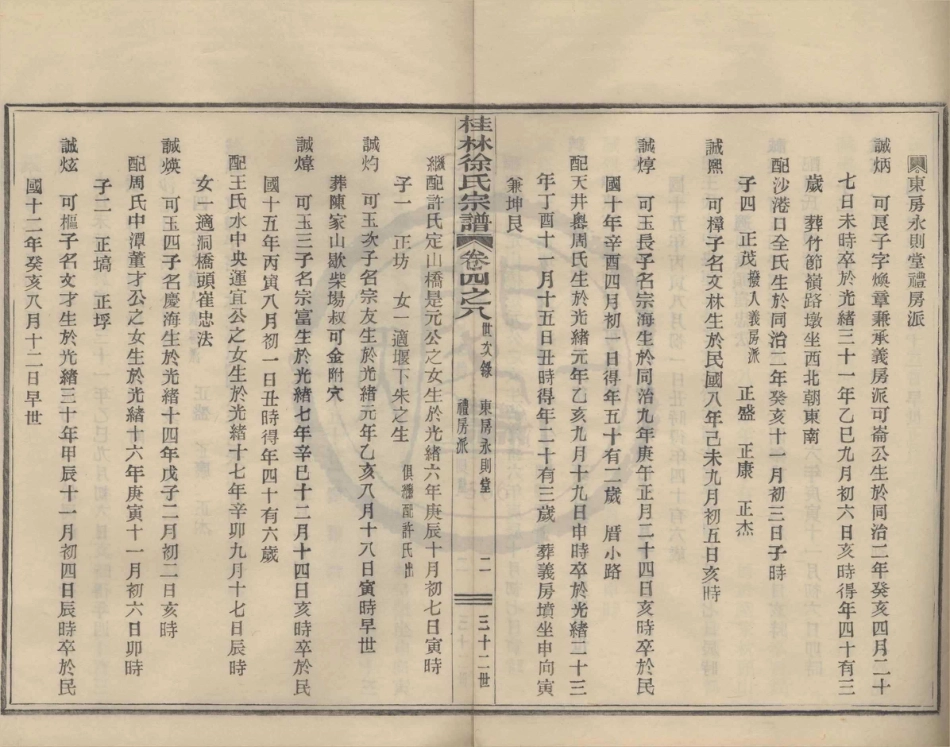 東房永則堂禮房派
誠炳 可艮子字煥章兼承義房派可崙公生於同治二年癸亥四月二十
七日未時卒於光緒三十一年乙巳九月初六日亥時得年四十有三
歲 葬竹節嶺路墩坐西北朝東南
配沙港口全氏生於同治二年癸亥十一月初三日子時
子四 正茂撥入義房派 正盛 正康 正杰
誠熙 可樟子名文林生於民國八年己未九月初五日亥時
誠焞 可玉長子名宗海生於同治九年庚午正月二十四日亥時卒於民
國十年辛酉四月初一日得年五十有二歲 厝小路
配天井嶴周氏生於光緒元年乙亥九月十九日申時卒於光緒二十三
年丁酉十一月十五日丑時得年二十有三歲 葬義房墳坐申向寅
兼坤艮
桂林徐氏宗譜 卷四之八 世次錄 東房永則堂 禮房派 二 三十二世
繼配許氏定山橋是元公之女生於光緒六年庚辰十月初七日寅時
子一 正坊 女一適堰下朱之生 俱繼配許氏出
誠灼 可玉次子名宗友生於光緒元年乙亥八月十八日寅時早世
葬陳家山歇柴場叔可金附穴
誠煒 可玉三子名宗富生於光緒七年辛巳十二月十四日亥時卒於民
國十五年丙寅八月初一日丑時得年四十有六歲
配王氏水中央運宜公之女生於光緒十七年辛卯九月十七日辰時
女一適洞橋頭崔忠法
誠煐 可玉四子名慶海生於光緒十四年戊子二月初二日亥時
配周氏中潭董才公之女生於光緒十六年庚寅十一月初六日卯時
子二 正塙 正垺
誠炫 可樞子名文才生於光緒三十年甲辰十一月初四日辰時卒於民
國十二年癸亥八月十二日早世